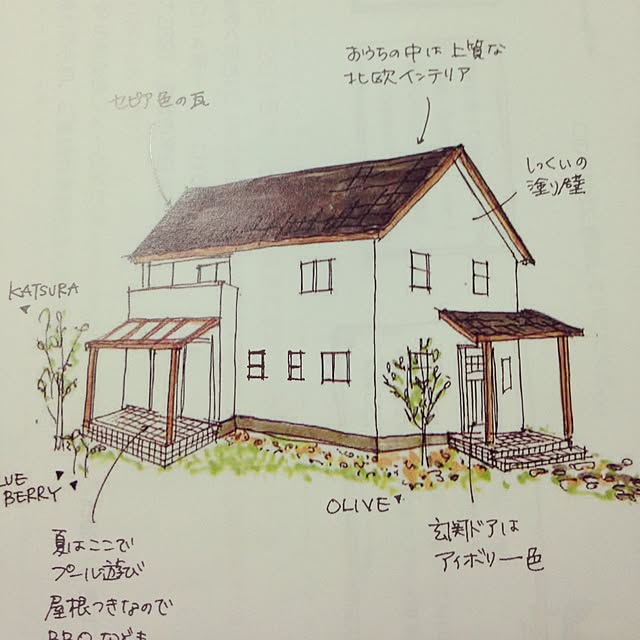 おうちの中は上質な
北欧インテリア
セピア色の瓦
しっくいの
塗り壁
KATSURA
BERRY
OLIVE
玄関ドアは
アイボリー色
夏はここで
プール遊び
屋根つきなので
BBQなども